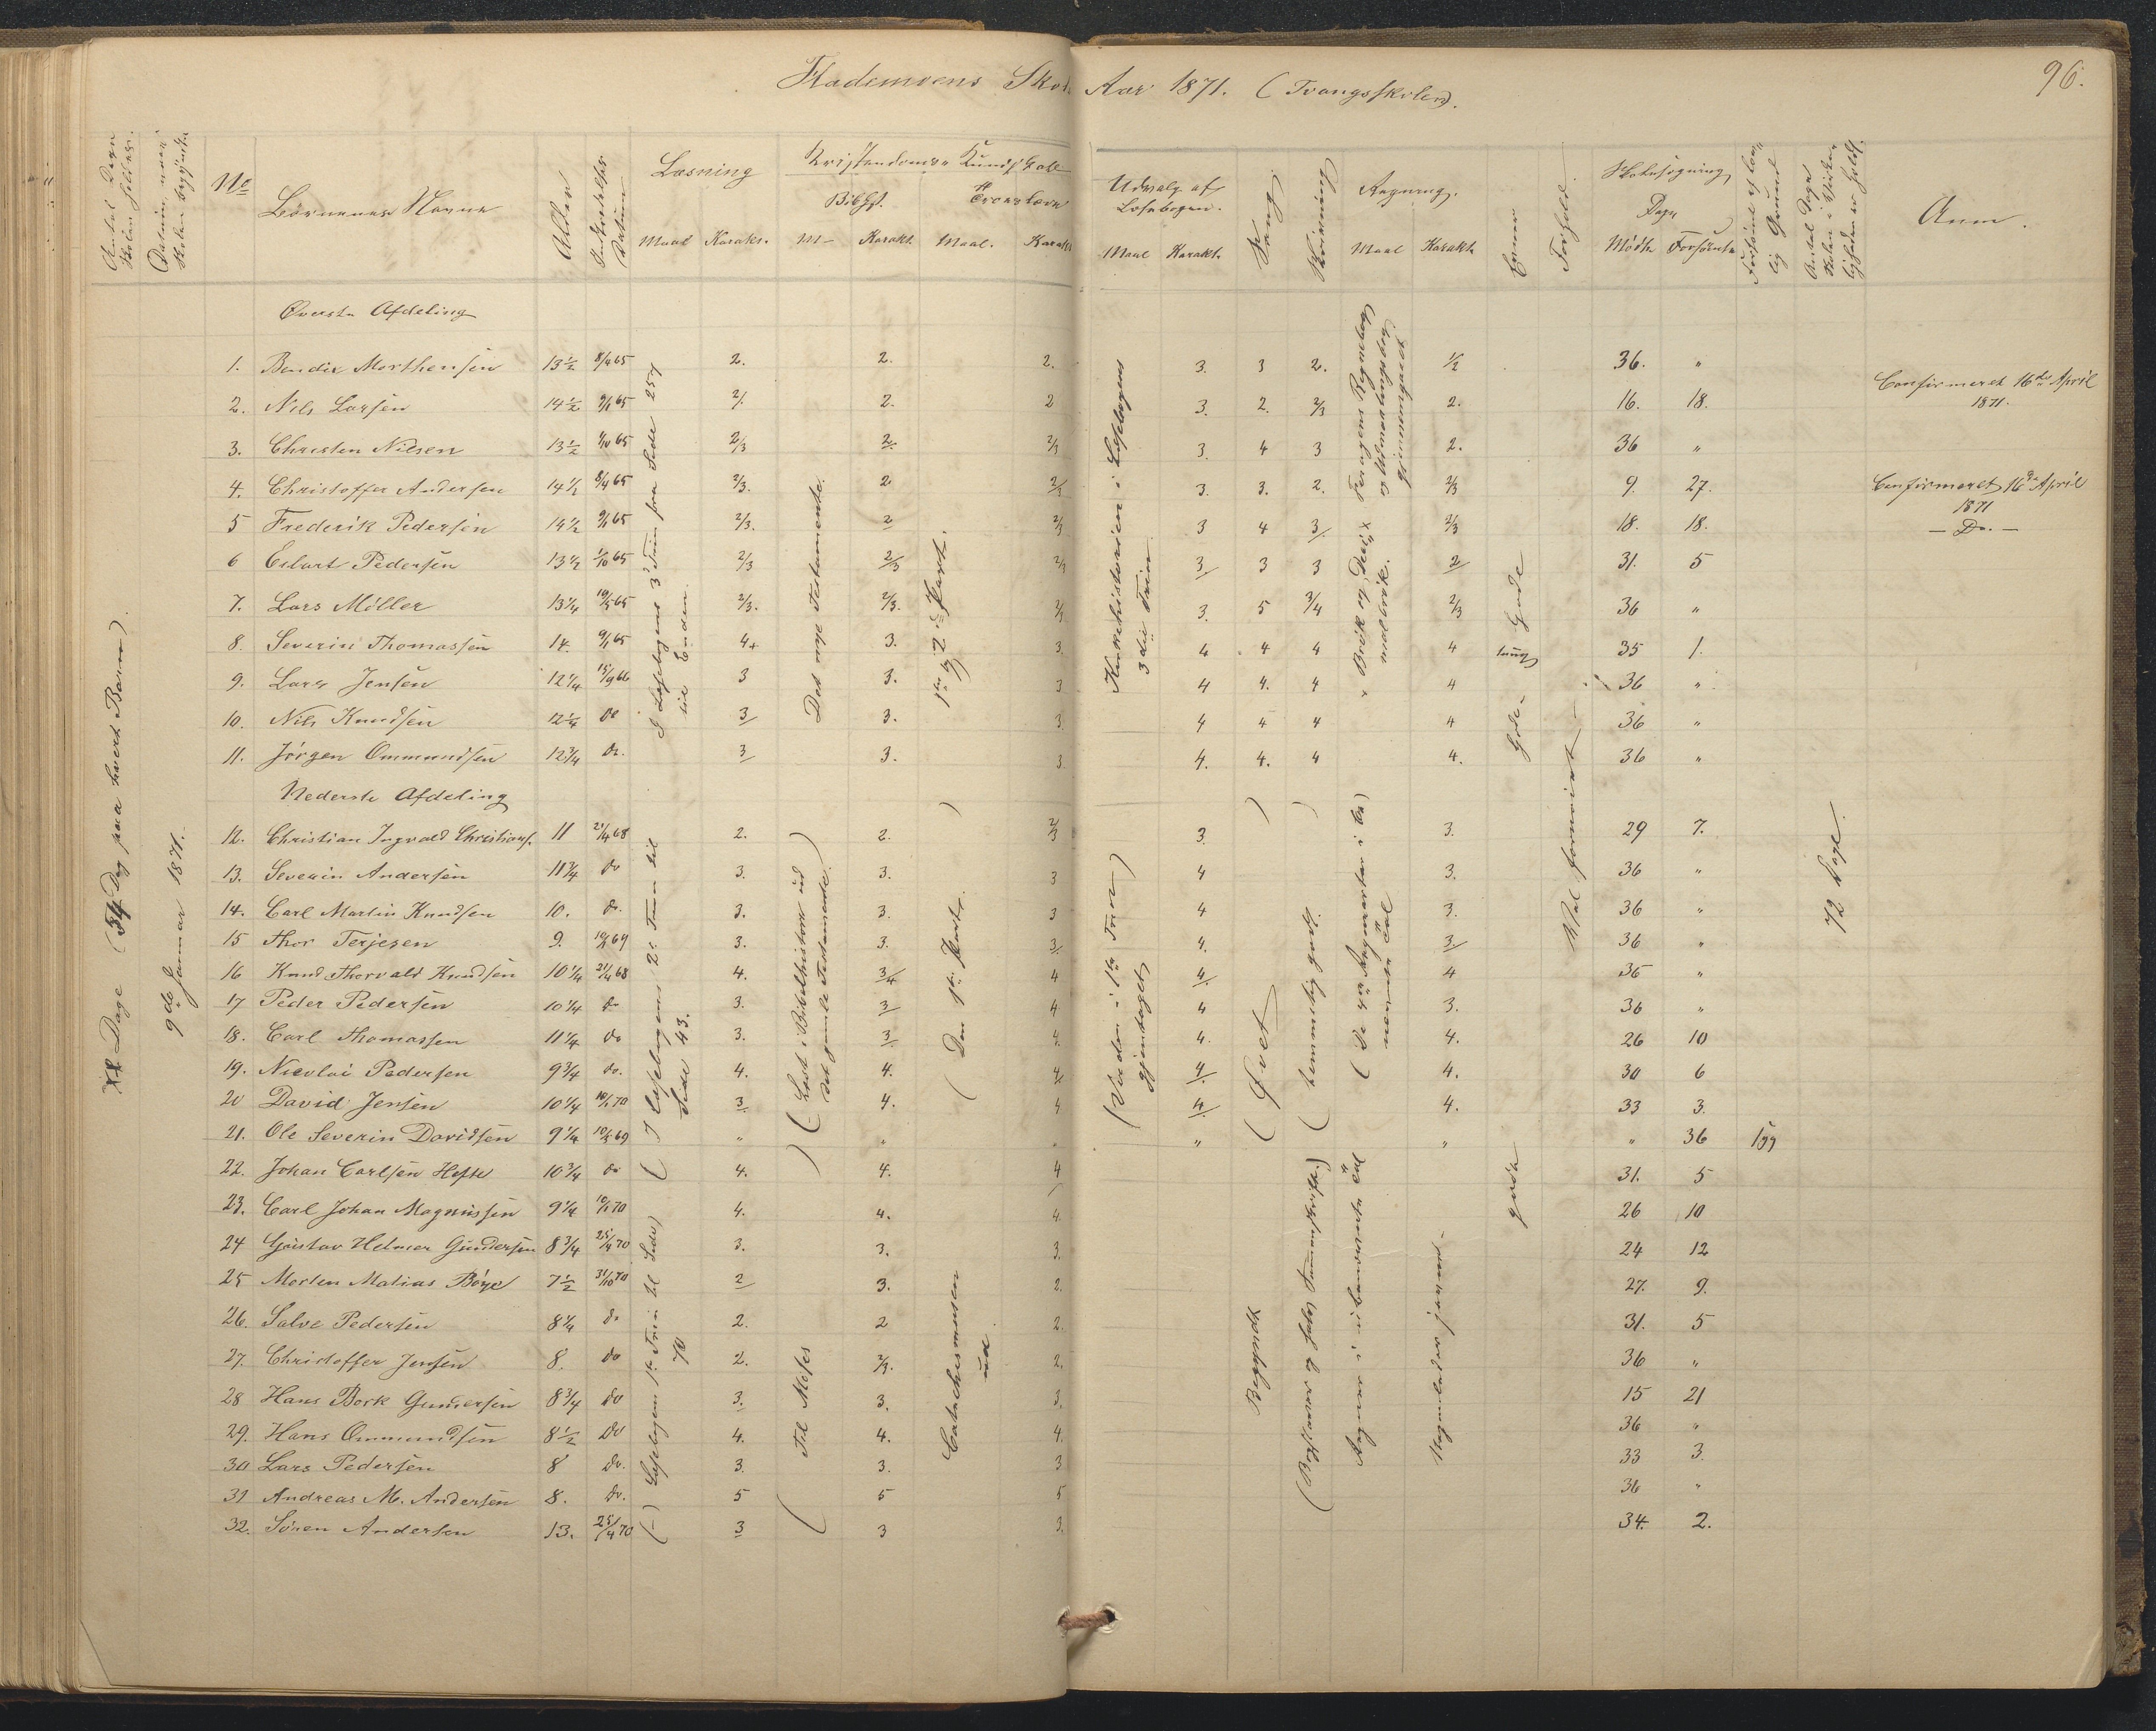 Flademoens Skole Aar 1871. (Tvangsskolen).
96.
Antal Dage Skolen holdes.
Datum, naar Skolen begynte
No
Børnenes Navne
Alder
Indtrædelses Datum
Læsning
Maal Karakt.
Kristendoms Kundskab
Bibhst.
M– Karakt.
Troeslære
Maal. Karakt
Udvalg af Læsebogen.
Maal Karakt.
Sang.
Skrivning
Regning.
Maal Karakt.
Evner
Forhold.
Skolesøgning
Dage
Mødte Forsømte
Forsømt af lovlig Grund
Antal Dage Skolen i Virkeligheden er holdt.
Anm.
Dage (54 Dag paa hvert Barn).
9de Januar 1871.
Øverste Afdeling
1. Bendix Morthensen 13½ 8/4 65 2. 2. 2. 3. 3 2. ½ 36. "
2. Nils Larsen 14½ 9/1 65 2/. 2. 2 3. 2. 2/3 2. 16. 18. Confirmeret 16de April 1871.
3. Christen Nilsen 13½ 1/10 65 2/3 2. 2/3 3. 4 3 2. 36 "
4. Christoffer Andersen 14½ 8/4 65 2/3. 2 2/3 3. 3. 2. 2/3 9. 27. Confirmeret 16de April 1871
5 Frederik Pedersen 14½ 9/1 65 2/3. 2 2/3 3 4 3/. 2/3 18. 18. – Do. –
6 Eilart Pedersen 13½ 1/10 65 2/3 2/3 2/3 3/ 3 3 2/ 31. 5
7. Lars Möller 13¼ 19/5 65 2/3. 2/3. 2/3 3. 5 3/4 2/3 36 "
8. Severin Thomassen 14. 9/1 65 4+ 3. 3. 4 4 4 4 35 1.
9. Lars Jensen 12¼ 15/9 66 3 3. 3 4 4. 4 4 36 "
10. Nils Knudsen 12¼ do 3/ 3. 3. 4 4 4 4 36 "
11. Jørgen Ommundsen 12¾ do. 3/ 3. 3. 4. 4. 4 4. 36 "
I Læsebogens 3die Trin fra Side 257 til Enden
Det nye Testamente.
1ste og 2den Part.
Kirkehistorien i Læsebogens 3die Trin
Brøk og Decimalbrøk.
gjennemgaaet
Gode
tung
Gode
Vel forøvrigt –
Nederste Afdeling
12. Christian Ingvald Christians. 11 21/4 68 2. 2. 2/3 3. 3. 29 7.
13. Severin Andersen 11¾ do 3. 3. 3 4 3. 36 "
14. Carl Martin Knudsen 10. do. 3. 3. 3 4 3. 36 "
15 Thor Terjesen 9. 10/5 69 3. 3. 3. 4. 3/ 36 "
16 Knud Thorvald Knudsen 10¼ 21/4 68 4. 3/4 4 4/. 4 36 "
17 Peder Pedersen 10¼ do 3. 3/ 4 4 3. 36 "
18. Carl Thomassen 11¼ do 3. 3/ 4. 4. 4. 26 10
19. Nicolai Pedersen 9¾ do. 4. 4. 4 4/. 4. 30 6
20 David Jensen 10¼ 10/1 70 3 4. 4 4/. 4. 33 3.
21. Ole Severin Davidsen 9¼ 10/5 69 " " " " " " 36 syg
22. Johan Carlsen Hefte 10¾ do 4. 4. 4 31. 5
23. Carl Johan Magnussen 9¼ 10/1 70 4. 4. 4. 26 10
24 Gustav Helmer Gundersen 8¾ 25/4 70 3. 3. 3. 24 12
25 Morten Matias Böye 7½ 31/10 70 2/ 3. 2. 27. 9.
26. Salve Pedersen 8¼ do 2. 2 2. 31. 5
27. Christoffer Jensen 8. do 2. 2/3. 2. 36 "
28 Hans Bork Gundersen 8¾ do 3. 3. 3. 15 21
29. Hans Ommundsen 8½ do 4. 4. 4. 36 "
30 Lars Pedersen 8 do. 3. 3. 3 33 3.
31 Andreas M. Andersen 8. do. 5 5 5 36 "
32. Sören Andersen 13. 25/4 70 3 3 3. 34. 2.
(I Læsebogens 2det Trin til Side 43.
(–) Læsebogens 1ste Trin til Side) 70
(Læst i Bibelhistorie ud det gamle Testamente.)
Til Moses
(Den 1ste Part.)
Catechismusen ud
(Verden i 1ste Trin) gjentaget
(Øvet)
Begyndt
(temmelig godt.)
(Bogstaver og Sammenskrift.)
(De 4 Regnearter i benævnte Tal)
Regner i ubenævnte Tal
gode
72 Dage.